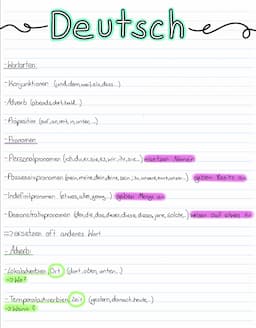 Deutsch
- Wortarten:
- Konjunktionen (und, denn, weil, als, dass...)
- Adverb (abends, dort, bald...)
- Präposition (auf, an, mit, in, unter, ...)
- Pronomen:
- Personalpronomen (ich, du, er, sie, es, wir, ihr, sie...) ersetzen Nomen
- Possessivpronomen (mein, meine, dein, deine, sein, ihr, unser, euer...) geben Besitz an
- Indefinitpronomen (etwas, alle, wenig...) geben Menge an
- Demonstrativpronomen (der, die, das, dieser, diese, dieses, jene, solche...) weisen auf etwas hin
=> ersetzen oft anderes Wort
- Adverb:
- Lokaladverbien Ort (dort, oben, unten...)
=> Wo?
- Temporaladverbien Zeit (gestern, danach, heute...)
=> Wann?